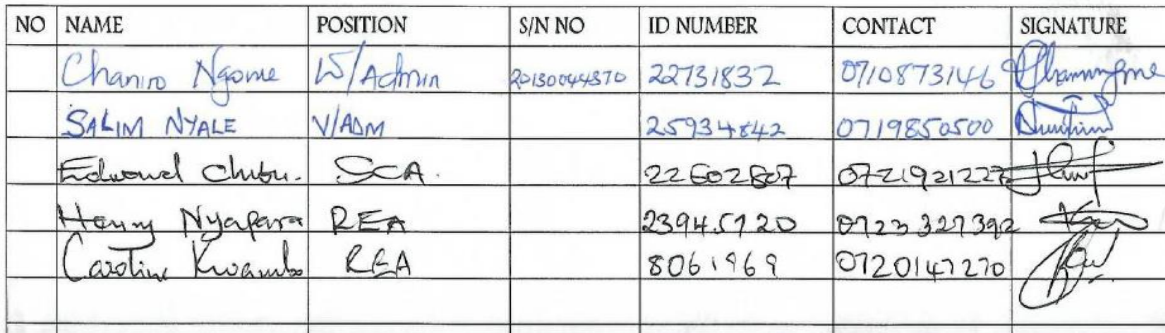 NO NAME POSITION S/N NO ID NUMBER CONTACT SIGNATURE
Chaniro Ngome W/Admin 20130044370 22731832 0710873146
SALIM NYALE V/ADM 25934842 0719850500
Edward Chibu. SCA. 22602807 0721921227
Henny Nyapara REA 23945720 0723327392
Caroline Kwambo REA 8061969 0720147270